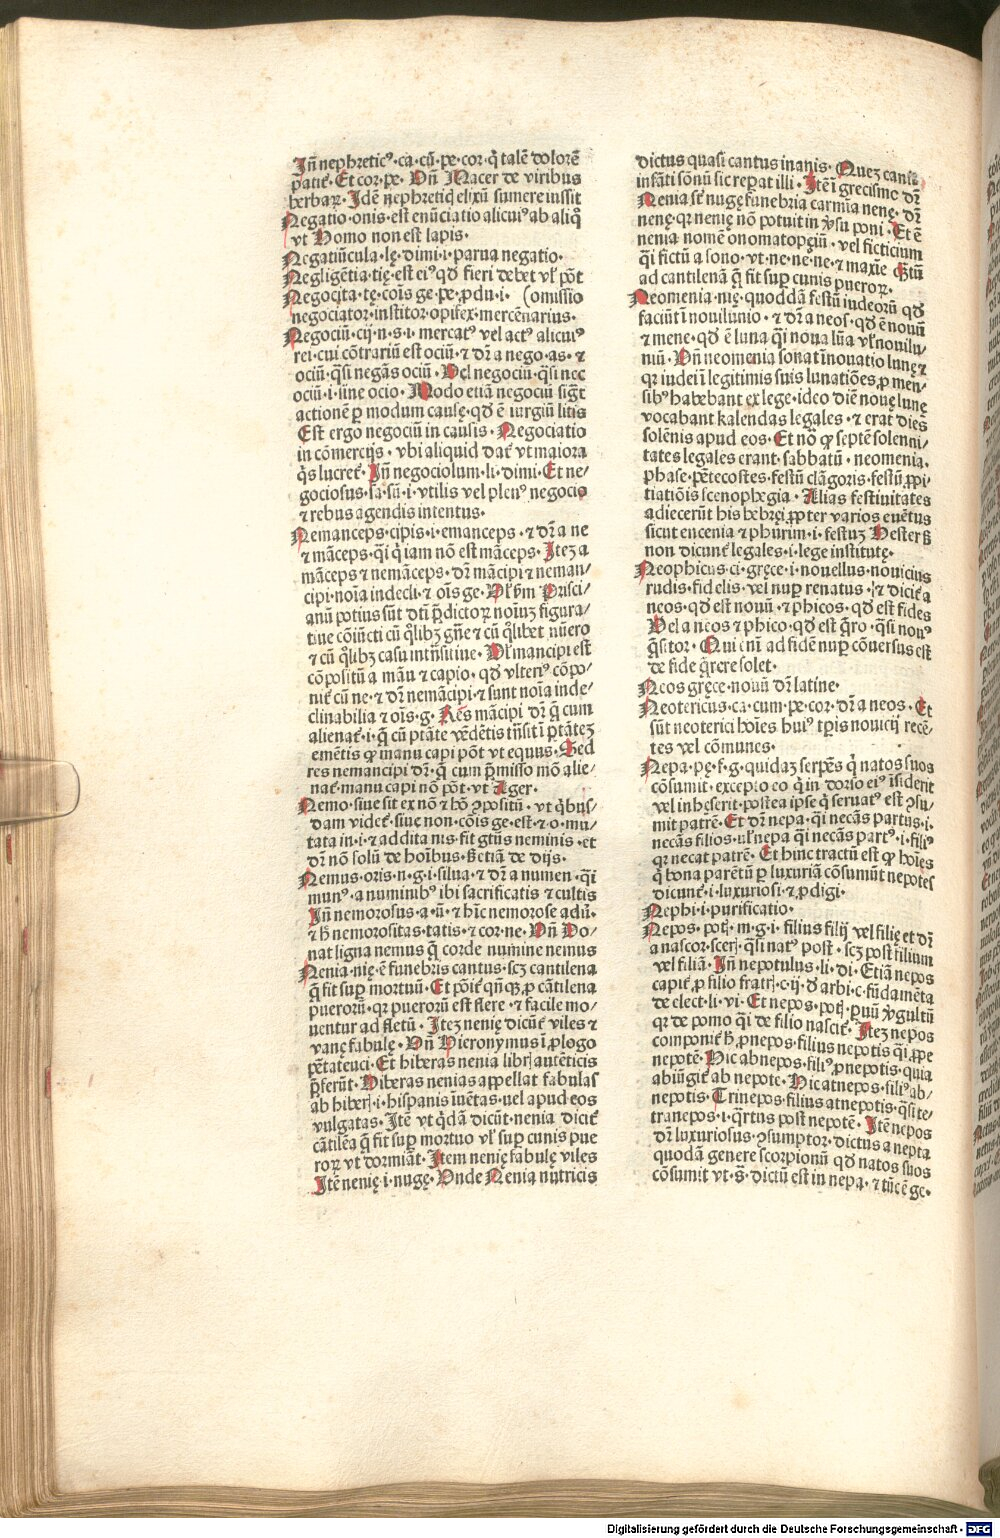 Jñ nephretic⁹·ca·cū·pe·cor·q̇ talē dolorē
patit̄·Et cor·pe· Vñ Macer de viribus
herbaꝝ·Idē nephretiq̇ elixū sumere iussit
Negatio·onis·est enūciatio alicui⁹ ab aliq̊
vt Homo non est lapis·
Negatiūcula·lę·dimi·i·parua negatio·
Negligētia·tię·est ei⁹ qđ fieri debet vł pōt
Negocita·tę·cōis ge·pe·ꝓdu·i· (omissio
negociator·institor·opifex·mercēnarius·
Negociū·cij·n·s·i·mercat⁹ vel act⁹ alicui⁹
rei·cui cōtrariū est ociū·⁊ dr̄ a nego·as·⁊
ociū·q̄si negās ociū·Vel negociū·q̄si nec
ociū·i·sine ocio·Modo etiā negociū sigt̄
actionē ꝑ modum causę·qđ ē iurgiū litis
Est ergo negociū in causis·Negociatio
in cōmercijs·vbi aliquid dat̄ vt maiora
q̄s lucret̄·Jñ negociolum·li·dimi·Et ne/
gociosus·sa·sū·i·vtilis vel plen⁹ negocio
⁊ rebus agendis intentus·
Nemanceps·cipis·i·emanceps·⁊ dr̄ a ne
⁊ māceps·qi q̇ iam nō est māceps·Itez a
māceps ⁊ nemāceps·dr̄ mācipi ⁊ neman/
cipi·noīa indecli·⁊ oīs ge·Vł ẜm Prisci/
anū potius sūt dcī p̄dictoꝝ noīuꝫ figura/
tiue cōiūcti cū q̄libꝫ gn̄e ⁊ cū q̄libet nūero
⁊ cū q̄libꝫ casu intn̄sitiue·Vł mancipi est
cōpositū a manu ⁊ capio·qđ vlteri⁹ cōpo/
nit̄ cū ne·⁊ dr̄ nemācipi·⁊ sunt noīa inde/
clinabilia ⁊ oīs·g·Res mācipi dr̄ q̄ cum
alienat̄·i·q̄ cū ptāte vēdētis trn̄sit ī ptātez
emētis ꝙ manu capi pōt vt equus·Sed
res nemancipi dr̄·q̄ cum p̄misso mō alie/
nat̄·manu capi nō pōt·vt Ager·
Nemo·siue sit ex nō ⁊ hō ꝯpositū·vt q̇bus/
dam videt̄·siue non·cōis ge·est·⁊·o·mu/
tata in·i·⁊ addita nis·fit gtūs neminis·et
dr̄ nō solū de hoībus·s̄ etiā de dijs·
Nemus·oris·n·g·i·silua·⁊ dr̄ a numen·qi
mun⁹·a numinib⁹ ibi sacrificatis ⁊ cultis
Jñ nemorosus·a·ū·⁊ hīc nemorose adū·
⁊ h̄ nemorositas·tatis·⁊ cor·ne·Vñ Do/
nat ligna nemus q̄ corde numine nemus
Nenia·nię·ē funebris cantus·scꝫ cantilena
q̄ fit suꝑ mortuū·Et pōit̄ qn̄qꝫ ꝓ cātilena
pueroꝝ·qꝛ pueroꝝ est flere·⁊ facile mo/
uentur ad fletū·Itez nenię dicūt̄ viles ⁊
vanę fabulę·Vñ Hieronymus ī ꝓlogo
pētateuci·Et hiberas nenia libr̄ autēticis
p̄ferūt·Hiberas nenias appellat fabulas
ab hiber̄·i·hispanis īuētas·uel apud eos
vulgatas·Itē vt q̄dā dicūt·nenia dicit̄
cātilēa q̄ fit suꝑ mortuo vł suꝑ cunis pue
roꝝ vt dormiāt·Item nenię fabulę viles
Itē nenię·i·nugę·Vnde Nenia nutricis
dictus quasi cantus inanis·Quez cansi
infāti sonū sic reperat illi·Itē ī grecismo dr̄
Nenia sit nugę funebria carmīa nenę·dr̄
nenę·qꝛ nenię nō potuit in v̄su poni·Et ē
nenia nomē onomatopęiū·vel ficticium
qi fictū a sono·vt·ne·ne·ne·⁊ maxīe q̄tū
ad cantilenā q̄ fit suꝑ cunis pueroꝝ·
Neomenia·nię·quoddā festū iudeorū qđ
faciūt ī nouilunio·⁊ dr̄ a neos·qđ ē nouū
⁊ mene·qđ ē luna q̄i noua lūa vł nouilu/
niū·Vñ neomenia sonat īnouatio lunę ⁊
qꝛ iudei ī legitimis suis lunatiōes ꝓ men/
sib⁹ habebant ex lege·ideo diē nouę lunę
vocabant kalendas legales·⁊ erat dies
solēnis apud eos·Et nō ꝙ septē solenni/
tates legales erant·sabbatū·neomenia·
phase·pētecostes·festū clāgoris·festū ꝓpi
tiatiōis scenophęgia·Alias festiuitates
adiecerūt his hebręi ꝓpter varios euētus
sicut encenia ⁊ phurim·i·festuꝫ Hester q̄
non dicunt̄ legales·i·lege institutę·
Neophicus·ci·gręce·i·nouellus·nouicius
rudis·fidelis·vel nuꝑ renatus·⁊ dicit̄ a
neos·qđ est nouū·⁊ phicos·qđ est fides
Vel a neos ⁊ phico·qđ est q̄ro·q̄si nou⁹
q̄sitor·Qui eni ad fidē nuꝑ cōuersus est
de fide q̄rere solet·
Neos gręce·nouū dr̄ latine·
Neotericus·ca·cum·pe·cor·dr̄ a neos·Et
sūt neoterici hoīes hui⁹ tꝑis nouicij recē/
tes vel cōmunes·
Nepa·pę·f·g·quidaz serpēs q̇ natos suos
cōsumit·excepto eo q̇ in dorso ei⁹ īsiderit
vel inheserit·postea ipse q̇ seruat⁹ est ꝯsu/
mit patrē·Et dr̄ nepa·qi necās partus·i·
necās filios·uł nepa q̄i necās part⁹·i·fili⁹
qꝛ necat patrē·Et hinc tractū est ꝙ hoīes
q̇ bona parētū ꝑ luxuriā cōsumūt nepotes
dicunt̄·i·luxuriosi·⁊ ꝓdigi·
Nephi·i·purificatio·
Nepos·potꝭ·m·g·i·filius filij vel filię et dr̄
a nascor·scerꝭ·q̄si nat⁹ post·scꝫ post filium
vel filiā·Jñ nepotulus·li·di·Etiā nepos
capit̄ ꝓ filio fratrꝭ·c·ij·đ arbi·c·fūdamēta
de elect·li·vi·Et nepos·potꝭ·ꝑuū v̄gultū
qꝛ de pomo q̄i de filio nascit̄·Itez nepos
componit̄ h̄·ꝓnepos·filius nepotis q̄i ꝓpe
nepotē·Hic abnepos·fili⁹ ꝓnepotis·quia
abiūgit̄ ab nepote·Hic atnepos·fili⁹ ab/
nepotis·Trinepos·filius atnepotis·q̄si te/
tranepos·i·q̄rtus post nepotē·Itē nepos
dr̄ luxuriosus·ꝯsumptor·dictus a nepta
quodā genere scorpionū qđ natos suos
cōsumit vt·s̄·dictū est in nepa·⁊ tūc ē ge·
Digitalisierung gefördert durch die Deutsche Forschungsgemeinschaft - DFG